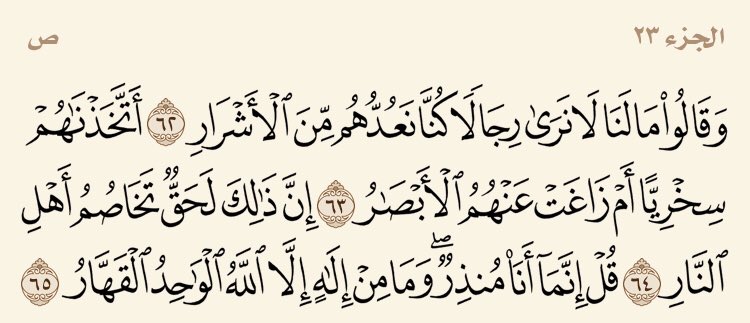 الجزء ٢٣ ص
وَقَالُوا۟ مَا لَنَا لَا نَرَىٰ رِجَالًا كُنَّا نَعُدُّهُم مِّنَ ٱلْأَشْرَارِ ٦٢ أَتَّخَذْنَٰهُمْ
سِخْرِيًّا أَمْ زَاغَتْ عَنْهُمُ ٱلْأَبْصَٰرُ ٦٣ إِنَّ ذَٰلِكَ لَحَقٌّ تَخَاصُمُ أَهْلِ
ٱلنَّارِ ٦٤ قُلْ إِنَّمَآ أَنَا۠ مُنذِرٌ ۖ وَمَا مِنْ إِلَٰهٍ إِلَّا ٱللَّهُ ٱلْوَٰحِدُ ٱلْقَهَّارُ ٦٥